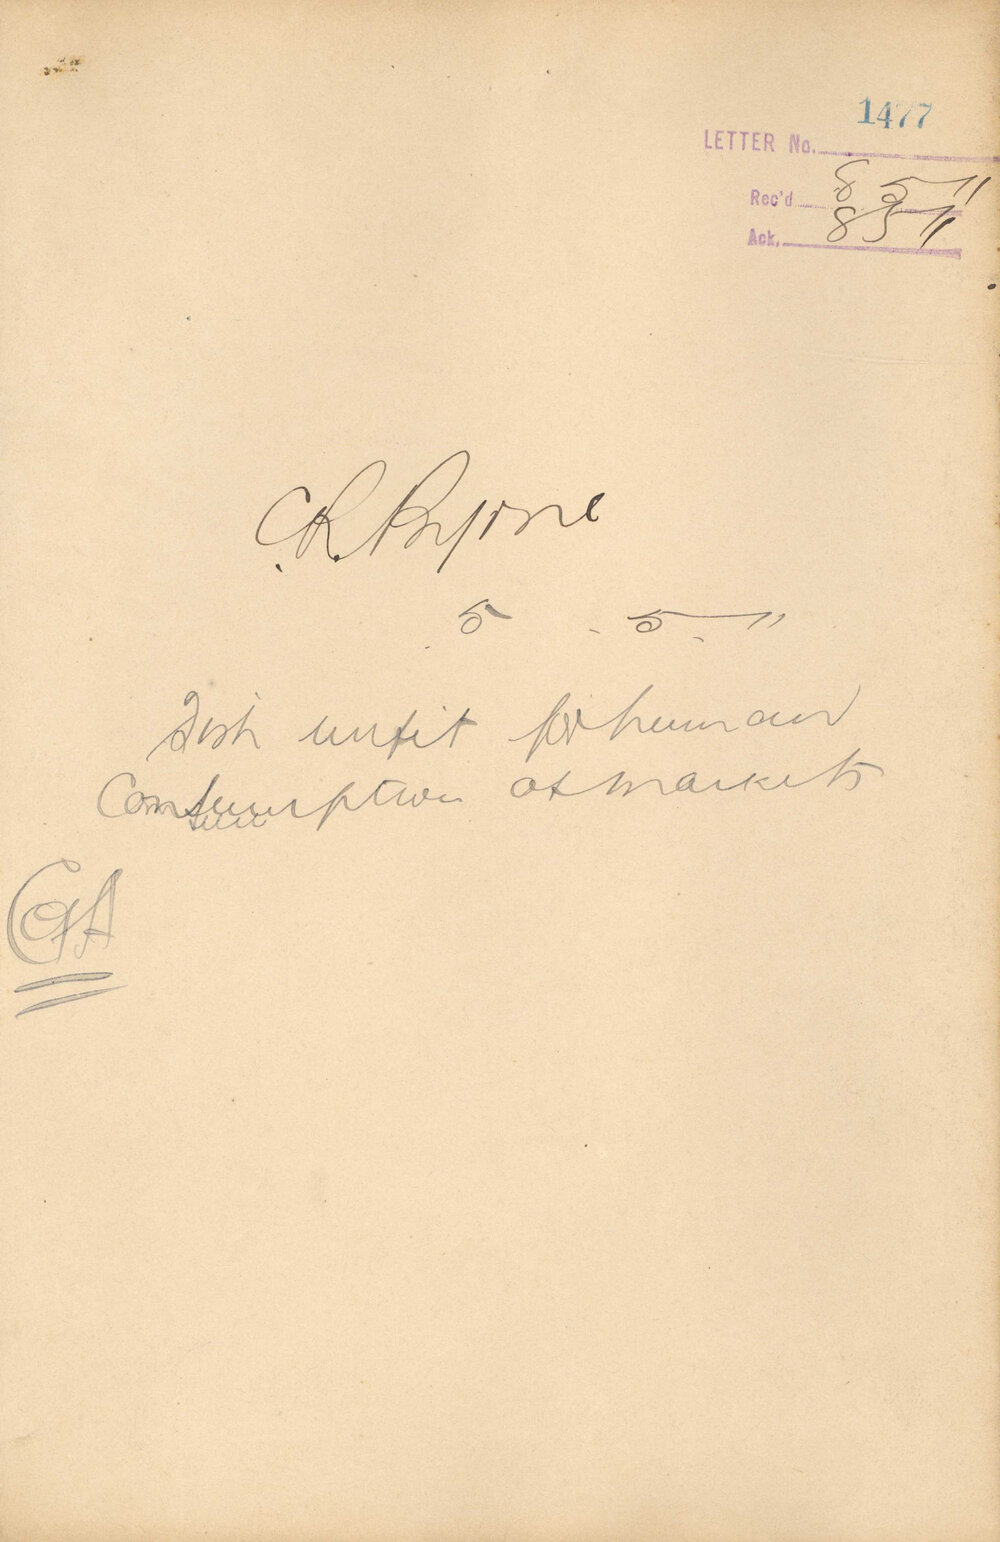 1477
LETTER No.
Rec'd 8 5 11
Ack. 8 5 11
C.R. Byrne
5 . 5 . 11
Fish unfit for human
Consumption at markets